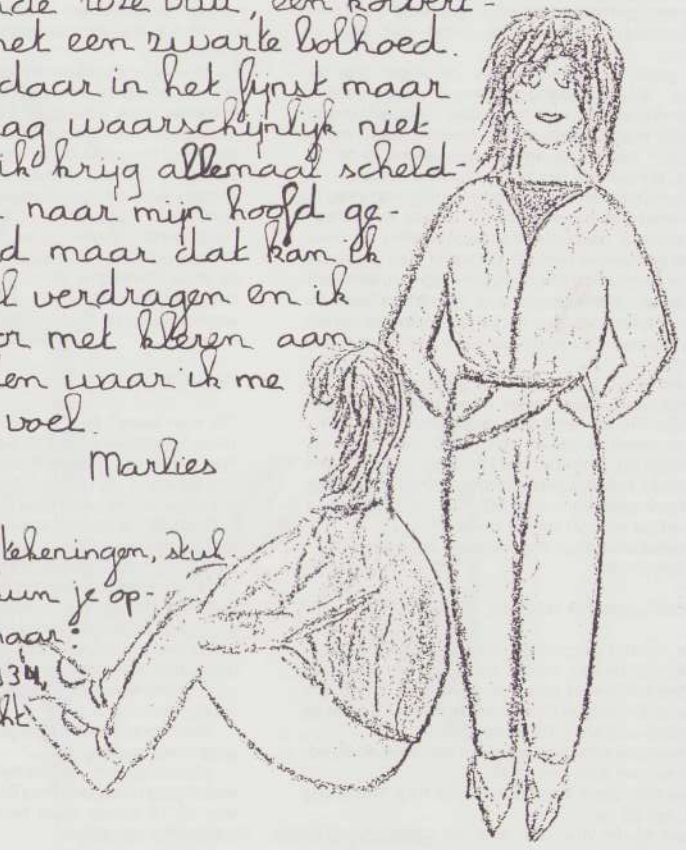 roze een
met een zwarte bolhoed.
daar in het fijnst maar
ag waarschijnlijk niet
ik krijg allemaal scheld-
naar mijn hoofd ge-
d maar dat kan ik
l verdragen en ik
or met kleren aan
en waar ik me
voel.
Marlies
tekeningen, skul
un je op-
naar:
134,
cht